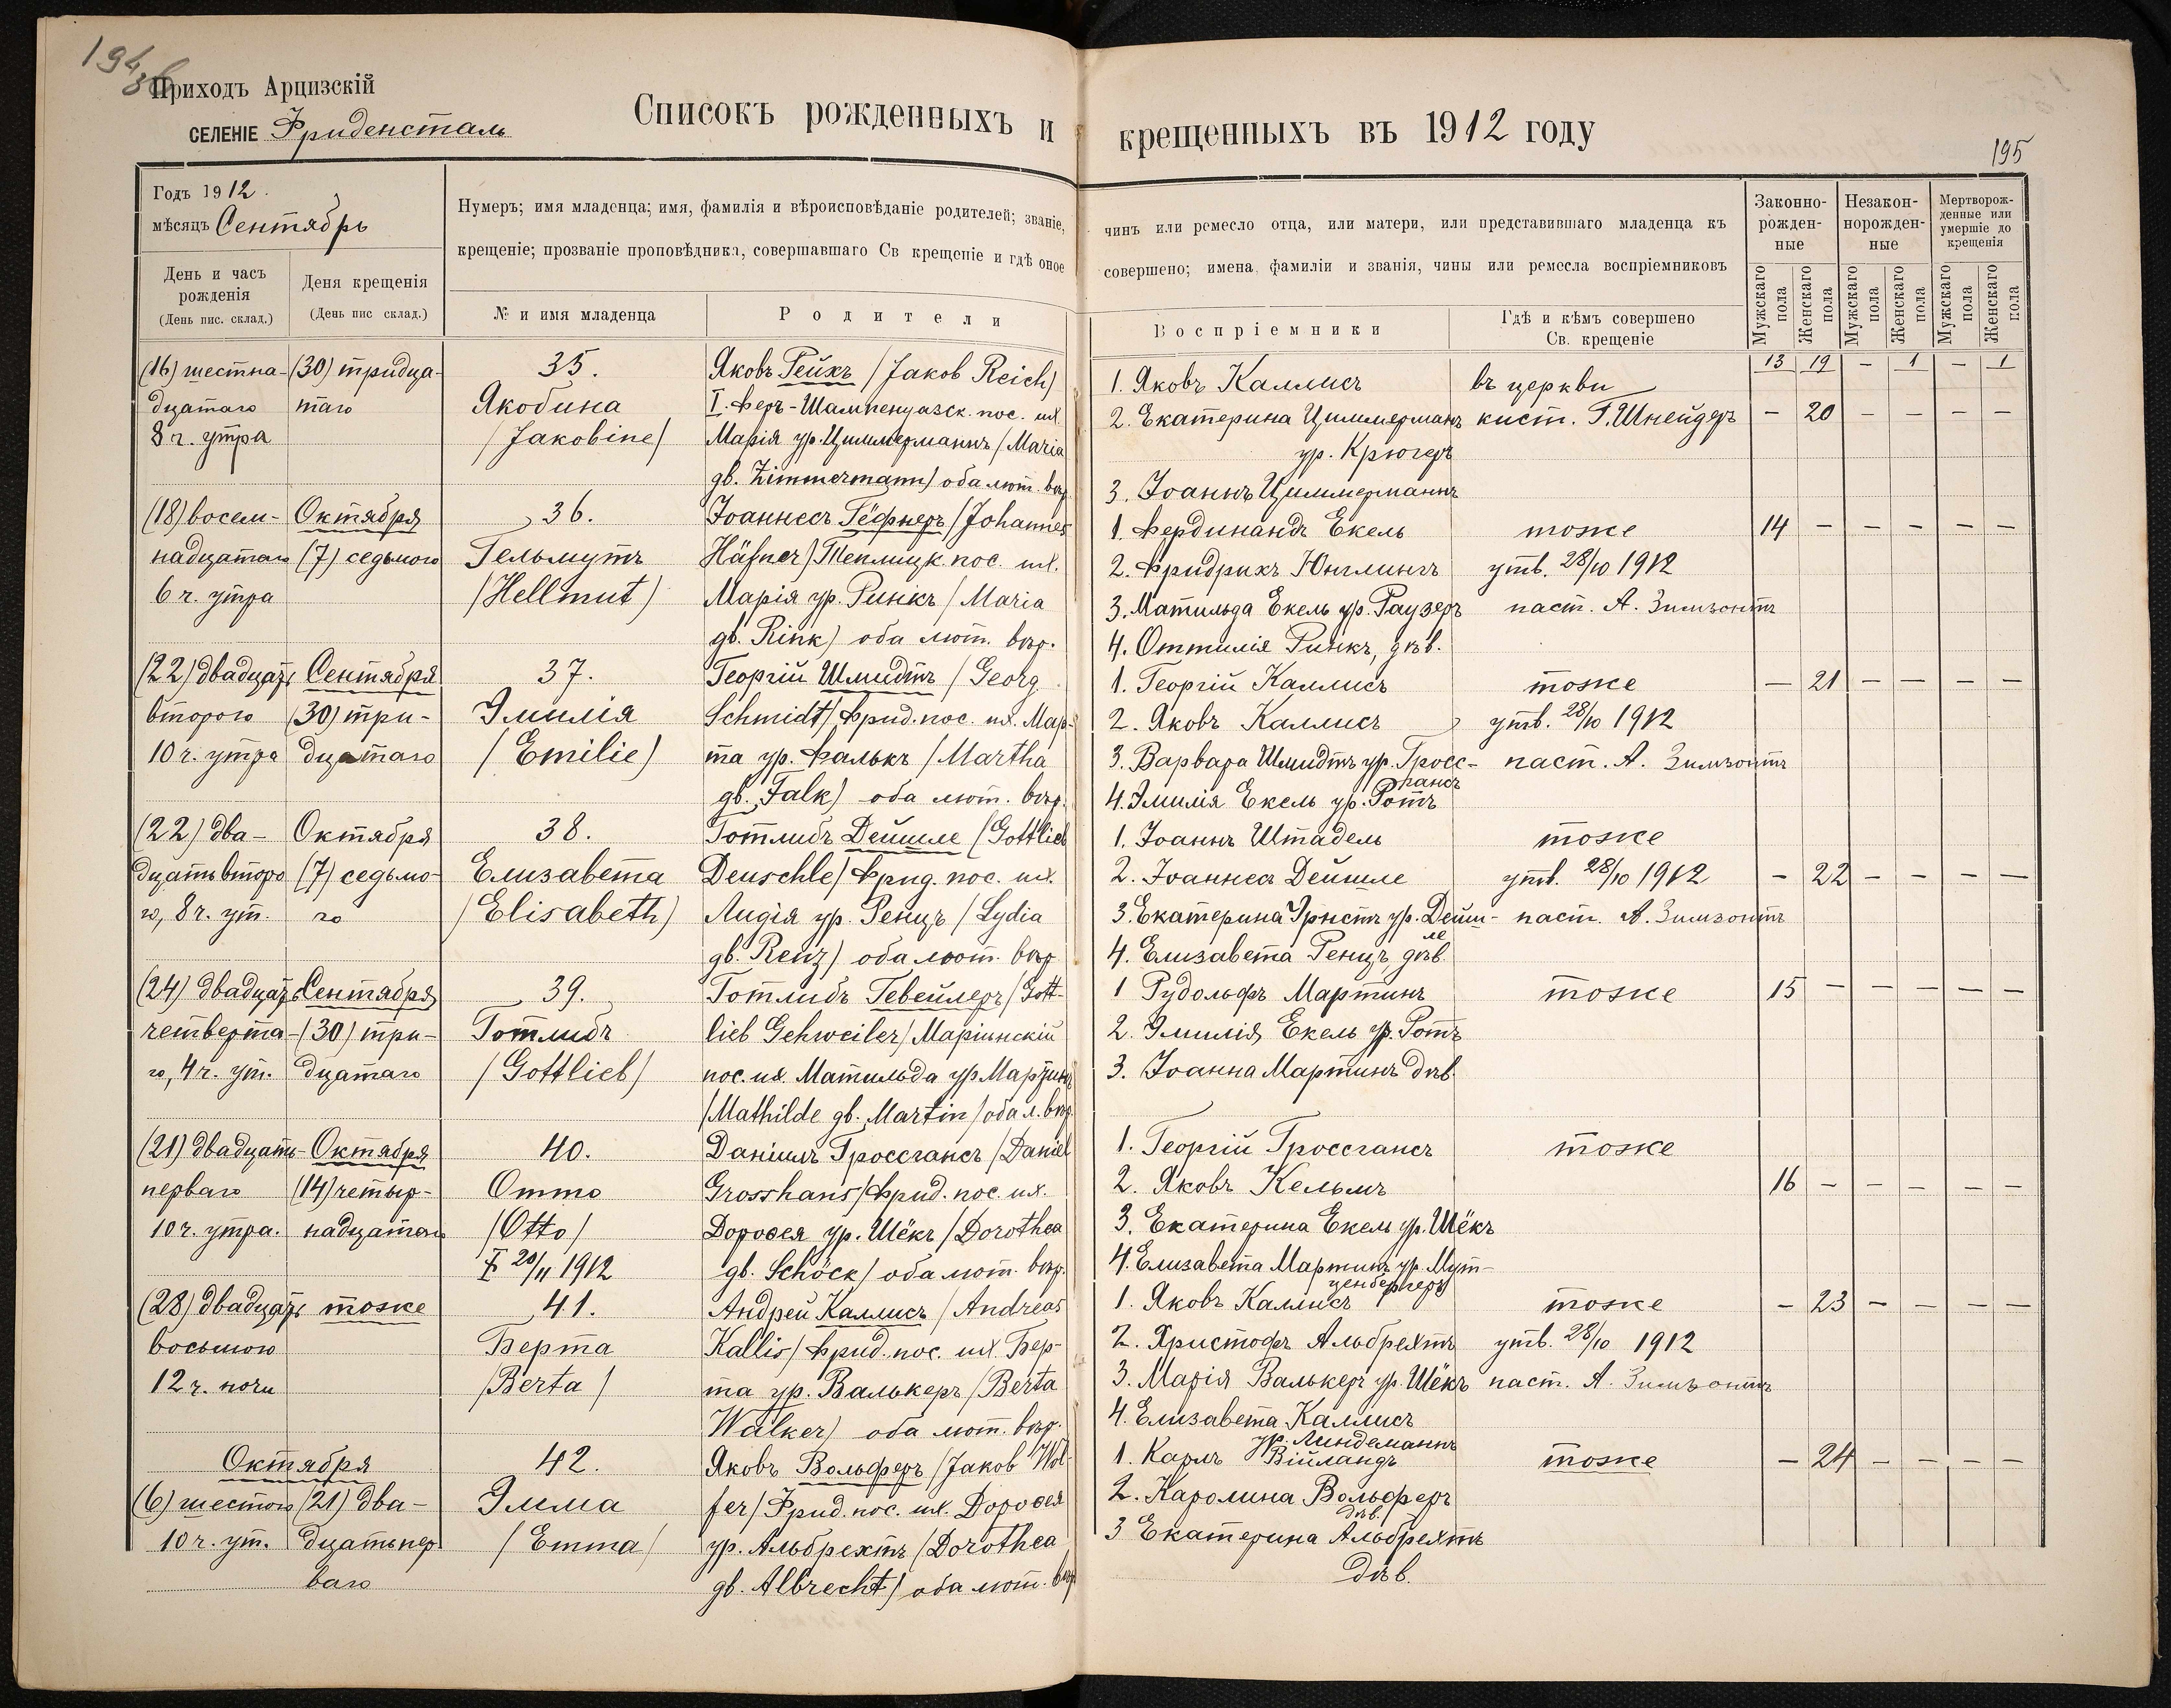 194
Приходъ Арцизскій
СЕЛЕНІЕ Фриденсталь
Списокъ рожденныхъ и крещенныхъ въ 1912 году
195
Годъ 1912.
мѣсяцъ Сентябрь
День и часъ рожденія
(День пис. склад.)
Деня крещенія
(День пис склад.)
Нумеръ; имя младенца; имя, фамилія и вѣроисповѣданіе родителей; званіе, чинъ или ремесло отца, или матери, или представившаго младенца къ
крещеніе; прозваніе проповѣдника, совершавшаго Св крещеніе и гдѣ оное совершено; имена, фамиліи и званія, чины или ремесла воспріемниковъ
№ и имя младенца
Родители
Воспріемники
Гдѣ и кѣмъ совершено
Св. крещеніе
Законно-
рожден-
ные
Незакон-
норожден-
ные
Мертворож-
денные или
умершіе до
крещенія
Мужскаго пола
Женскаго пола
Мужскаго пола
Женскаго пола
Мужскаго пола
Женскаго пола
13 19 - 1 - 1
(16) шестна-
дцатаго
8 ч. утра
(30) тридца-
таго
35.
Якобина
/Jakobine/
Яковъ Рейхъ /Jakob Reich/
I. Фер-Шампенуазск. пос. их.
Марія ур. Циммерманнъ /Maria
gb. Zimmermann) оба лют. вѣр.
1. Яковъ Каллисъ
2. Екатерина Циммерманъ
ур. Крюгеръ
3. Іоаннъ Циммерманнъ
въ церкви
кист. Г. Шнейдеръ
- 20 - - - -
(18) восем-
надцатаго
6 ч. утра
Октября
(7) седьмого
36.
Гельмутъ
/Hellmut)
Іоаннесъ Гефнеръ /Johannes
Häfner) Теплицк. пос. их.
Марія ур. Ринкъ /Maria
gb. Rink) оба лют. вѣр.
1. Фердинандъ Екель
2. Фридрихъ Юнглингъ
3. Матильда Екель ур. Раузеръ
4. Оттилія Ринкъ, дѣв.
тоже
утв. 28/10 1912
паст. А. Зимзонтъ
14 - - - - -
(22) двадцать
второго
10 ч. утра
Сентября
(30) три-
дцатаго
37.
Эмилія
/Emilie)
Георгій Шмидтъ /Georg
Schmidt/ Фрид. пос. их. Мар-
та ур. Фалькъ /Martha
gb. Falk) оба лют. вѣр.
1. Георгій Каллисъ
2. Яковъ Каллисъ
3. Варвара Шмидтъ ур. Гросс-
гансъ
4. Эмилія Екель ур. Ротъ
тоже
утв. 28/10 1912
паст. А. Зимзонтъ
- 21 - - - -
(22) два-
дцать второ
го, 8 ч. ут.
Октября
(7) седьмо-
го
38.
Елизавета
/Elisabeth)
Готлибъ Дейшле (Gottlieb
Deuschle) Фрид. пос. их.
Лидія ур. Ренцъ /Lydia
gb. Renz) оба лют. вѣр
1. Іоаннъ Штадель
2. Іоаннес Дейшле
3. Екатерина Эрнстъ ур. Дейш-
ле
4. Елизавета Ренцъ, дѣв.
тоже
утв. 28/10 1912
паст. А. Зимзонтъ
- 22 - - - -
(24) двадцать
четверта-
го, 4 ч. ут.
Сентября
(30) три-
дцатаго
39.
Готлибъ
/Gottlieb/
Готлибъ Гевейлеръ /Gott-
lieb Gehweiler/ Маріинскій
пос. их. Матильда ур Мартинъ
/Mathilde gb. Martin/ оба л. вѣр.
1 Рудольфъ Мартинъ
2. Эмилія Екель ур. Ротъ
3. Іоанна Мартинъ дѣв.
тоже
15 - - - - -
(21) двадцать-
перваго
10 ч. утра.
Октября
(14) четыр-
надцатаго
40.
Отто
/Otto/
20/11 1912
Даніилъ Гроссгансъ /Daniel
Grosshans/ Фрид. пос. их.
Доροѳея ур. Шёкъ /Dorothea
gb. Schöck/ оба лют. вѣр.
1. Георгій Гроссгансъ
2. Яковъ Кельмъ
3. Екатерина Екель ур. Шёкъ
4. Елизавета Мартинъ ур. Мут-
ценбергеръ
тоже
16 - - - - -
(28) двадцать
восьмого
12 ч. ночи
тоже
41.
Берта
/Berta/
Андрей Каллисъ /Andreas
Kallis/ Фрид. пос. их. Бер-
та ур. Валькеръ /Berta
Walker) оба лют. вѣр.
1. Яковъ Каллисъ
2. Христофъ Альбрехтъ
3. Марія Валькеръ ур. Шёкъ
4. Елизавета Каллисъ
ур. Линдеманнъ
тоже
утв. 28/10 1912
паст. А. Зимзонтъ
- 23 - - - -
Октября
(6) шестого
10 ч. ут.
(21) два-
дцать пер
ваго
42.
Эмма
/Emma/
Яковъ Вольферъ (Jakob Wol-
fer/ Фрид. пос. их. Дороѳея
ур. Альбрехтъ (Dorothea
gb. Albrecht) оба лют. вѣр
1. Карлъ Війландъ
2. Каролина Вольферъ
дѣв.
3 Екатерина Альбрехтъ
дѣв.
тоже
- 24 - - - -